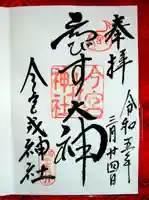 奉拝
令和五年
三月廿四日
ゑびす大神
今宮神社
今宮戎神社